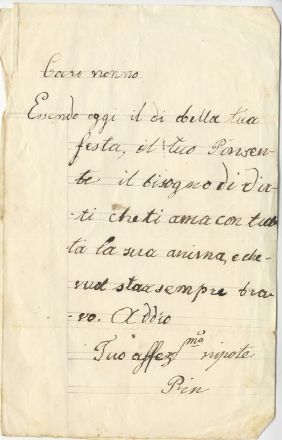 Caro nonno
Essendo oggi il di della tua
festa, il tuo Pin sen-
te il bisogno di dir-
-ti che ti ama con tut-
ta la sua anima, e che
vuol star sempre bra-
vo. Addio
Tuo affez.mo nipote
Pin